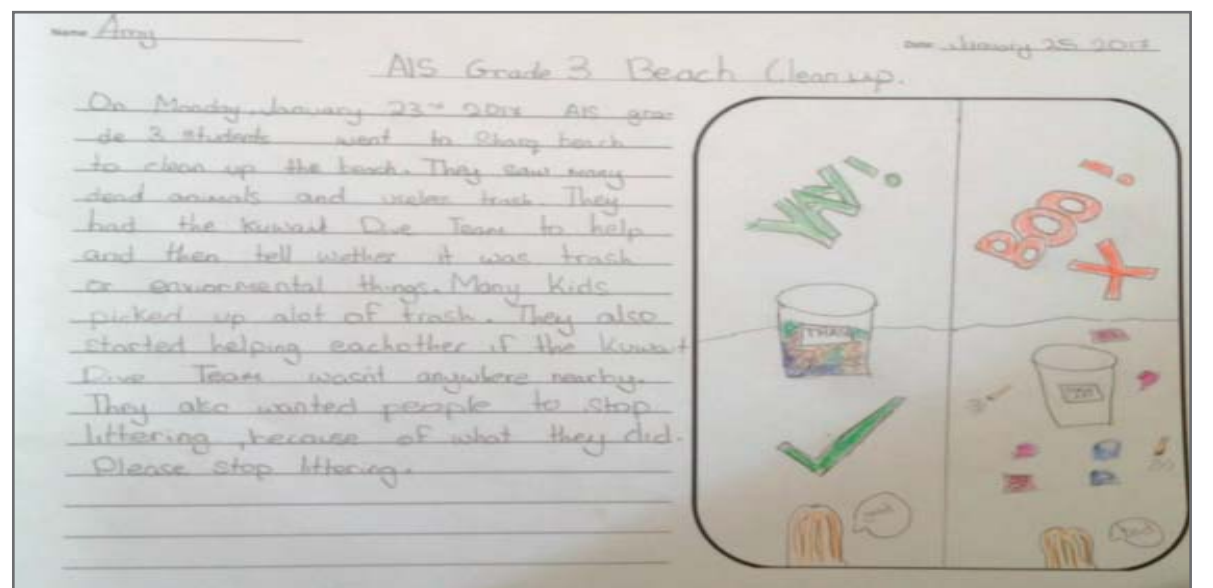 Name Amy
Date January 25 2017
AIS Grade 3 Beach Clean up.
On Monday, January 23rd 2017 AIS gra-
de 3 students went to Sharq beach
to clean up the beach. They saw many
dead animals and useles trash. They
had the Kuwait Dive Team to help
and then tell wether it was trash
or enviormental things. Many Kids
picked up alot of trash. They also
started helping eachother if the Kuwait
Dive Team wasn't anywhere nearby.
They also wanted people to stop
littering, because of what they did.
Please stop littering.
YAY!
BOO!
X
TRASH